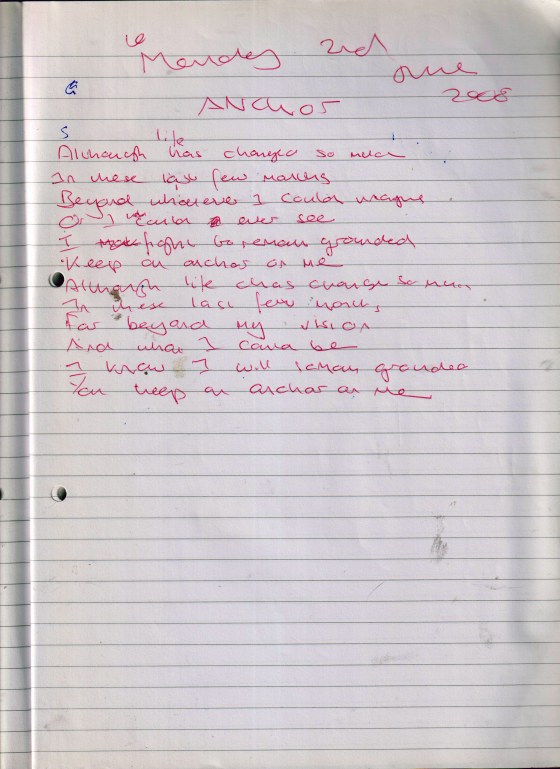 Monday 2nd
June
2008
ANCHOR
S
life
Although has changed so much
In these last few months
Beyond whatever I could imagine
Or I could ever see
I fight to remain grounded
Keep an anchor on me
Although life has change so much
In these last few months
Far beyond my vision
And what I could be
I know I will remain grounded
You keep an anchor on me